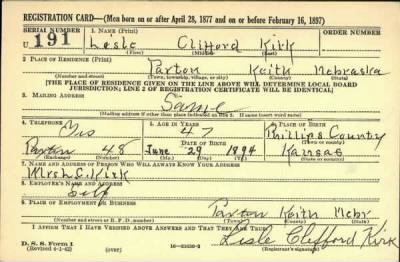 REGISTRATION CARD—(Men born on or after April 28, 1877 and on or before February 16, 1897)
SERIAL NUMBER 1. NAME (Print) ORDER NUMBER
U 191 Lisle Clifford Kirk
(First) (Middle) (Last)
2. PLACE OF RESIDENCE (Print)
Paxton Keith Nebraska
(Number and street) (Town, township, village, or city) (County) (State)
[THE PLACE OF RESIDENCE GIVEN ON THE LINE ABOVE WILL DETERMINE LOCAL BOARD
JURISDICTION; LINE 2 OF REGISTRATION CERTIFICATE WILL BE IDENTICAL]
3. MAILING ADDRESS
Same
[Mailing address if other than place indicated on line 2. If same insert word same]
4. TELEPHONE 5. AGE IN YEARS 6. PLACE OF BIRTH
47 Phillips County
DATE OF BIRTH (Town or county)
Paxton 48 June 29 1894 Kansas
(Exchange) (Number) (Mo.) (Day) (Yr.) (State or country)
7. NAME AND ADDRESS OF PERSON WHO WILL ALWAYS KNOW YOUR ADDRESS
Mrs L. C. Kirk
8. EMPLOYER'S NAME AND ADDRESS
Self
9. PLACE OF EMPLOYMENT OR BUSINESS
Paxton Keith Nebr
(Number and street or R. F. D. number) (Town) (County) (State)
I AFFIRM THAT I HAVE VERIFIED ABOVE ANSWERS AND THAT THEY ARE TRUE.
D. S. S. Form 1 Lisle Clifford Kirk
(Revised 4-1-42) (over) (Registrant's signature)